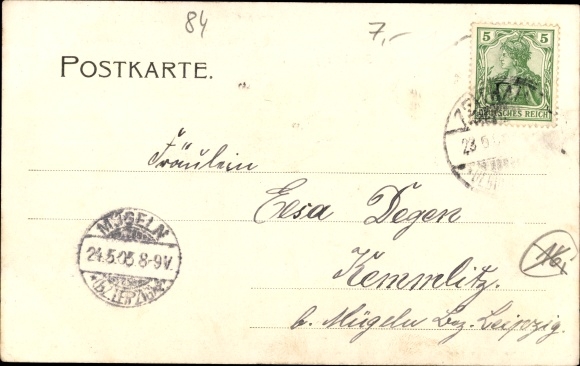 84
7,-
POSTKARTE.
5 5
DEUTSCHES REICH
23 5
Fräulein
Elsa Degen
Kemmlitz.
b. Mügeln Bez. Leipzig.
MÜGELN
24.5.05 8-9V.
*(BZ. LEIPZIG)*